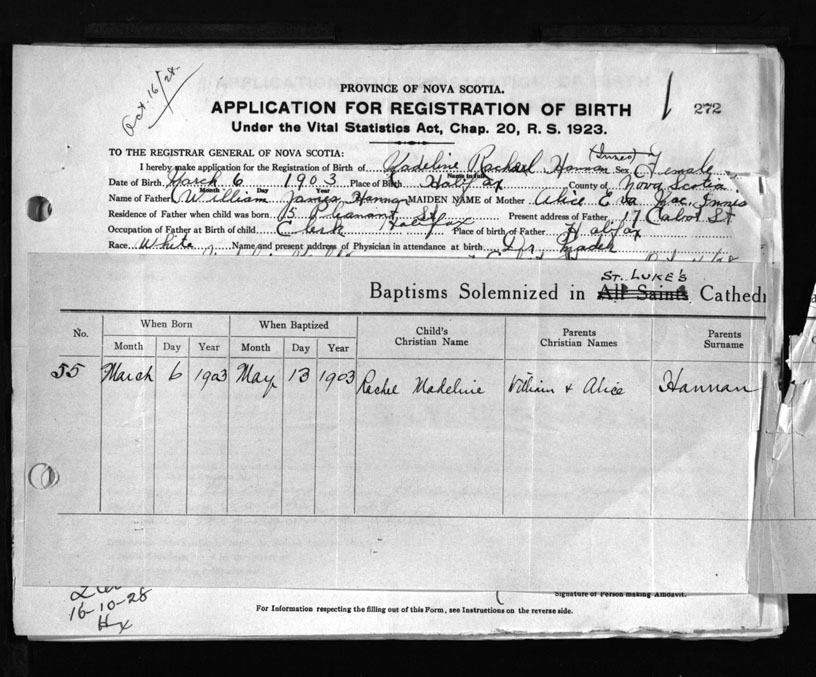 Oct. 16/28.
PROVINCE OF NOVA SCOTIA.
APPLICATION FOR REGISTRATION OF BIRTH
272
Under the Vital Statistics Act, Chap. 20, R. S. 1923.
TO THE REGISTRAR GENERAL OF NOVA SCOTIA:
(Innes)
I hereby make application for the Registration of Birth of Madeline Rachael Hannan Sex Female
Name in full
Date of Birth March 6 1903 Place of Birth Halifax County of Nova Scotia
Month Day Year
Name of Father William James Hannan MAIDEN NAME of Mother Alice Eva Mac Innis
Residence of Father when child was born 15 Pleasant St Halifax Present address of Father 17 Cabot St
Occupation of Father at Birth of child Clerk Place of birth of Father Halifax
Race White Name and present address of Physician in attendance at birth Dr
ST. LUKE'S
Baptisms Solemnized in All Saints Cathed
No. When Born When Baptized Child's Christian Name Parents Christian Names Parents Surname
Month Day Year Month Day Year
55 March 6 1903 May 13 1903 Rachel Madeline William & Alice Hannan
16-10-28
Hx
Signature of Person making Affidavit.
For Information respecting the filling out of this Form, see Instructions on the reverse side.